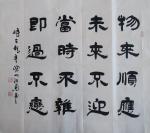 物來順應
未來不迎
當時不雜
即過不戀